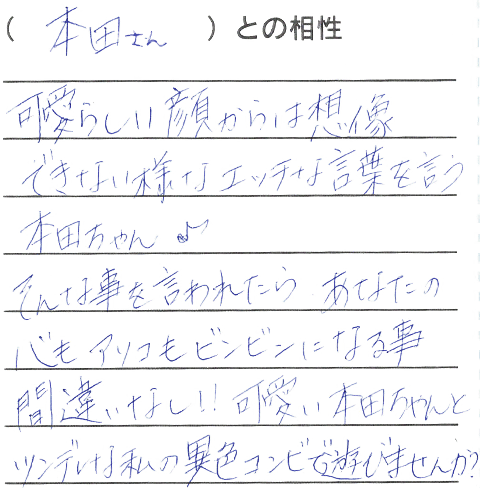 (本田さん)との相性
可愛らしい顔からは想像
できない様なエッチな言葉を言う
本田ちゃん♪
そんな事を言われたら あなたの
心もアソコもビンビンになる事
間違いなし!!可愛い本田ちゃんと
ツンデレな私の異色コンビで遊びませんか?